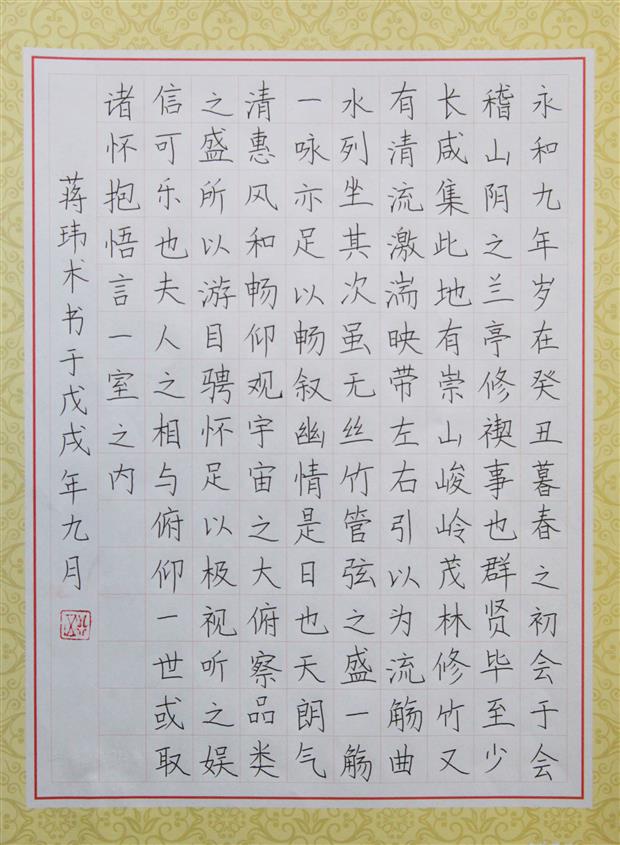 永和九年岁在癸丑暮春之初会于会
稽山阴之兰亭修禊事也群贤毕至少
长咸集此地有崇山峻岭茂林修竹又
有清流激湍映带左右引以为流觞曲
水列坐其次虽无丝竹管弦之盛一觞
一咏亦足以畅叙幽情是日也天朗气
清惠风和畅仰观宇宙之大俯察品类
之盛所以游目骋怀足以极视听之娱
信可乐也夫人之相与俯仰一世或取
诸怀抱悟言一室之内
蒋玮术书于戊戌年九月